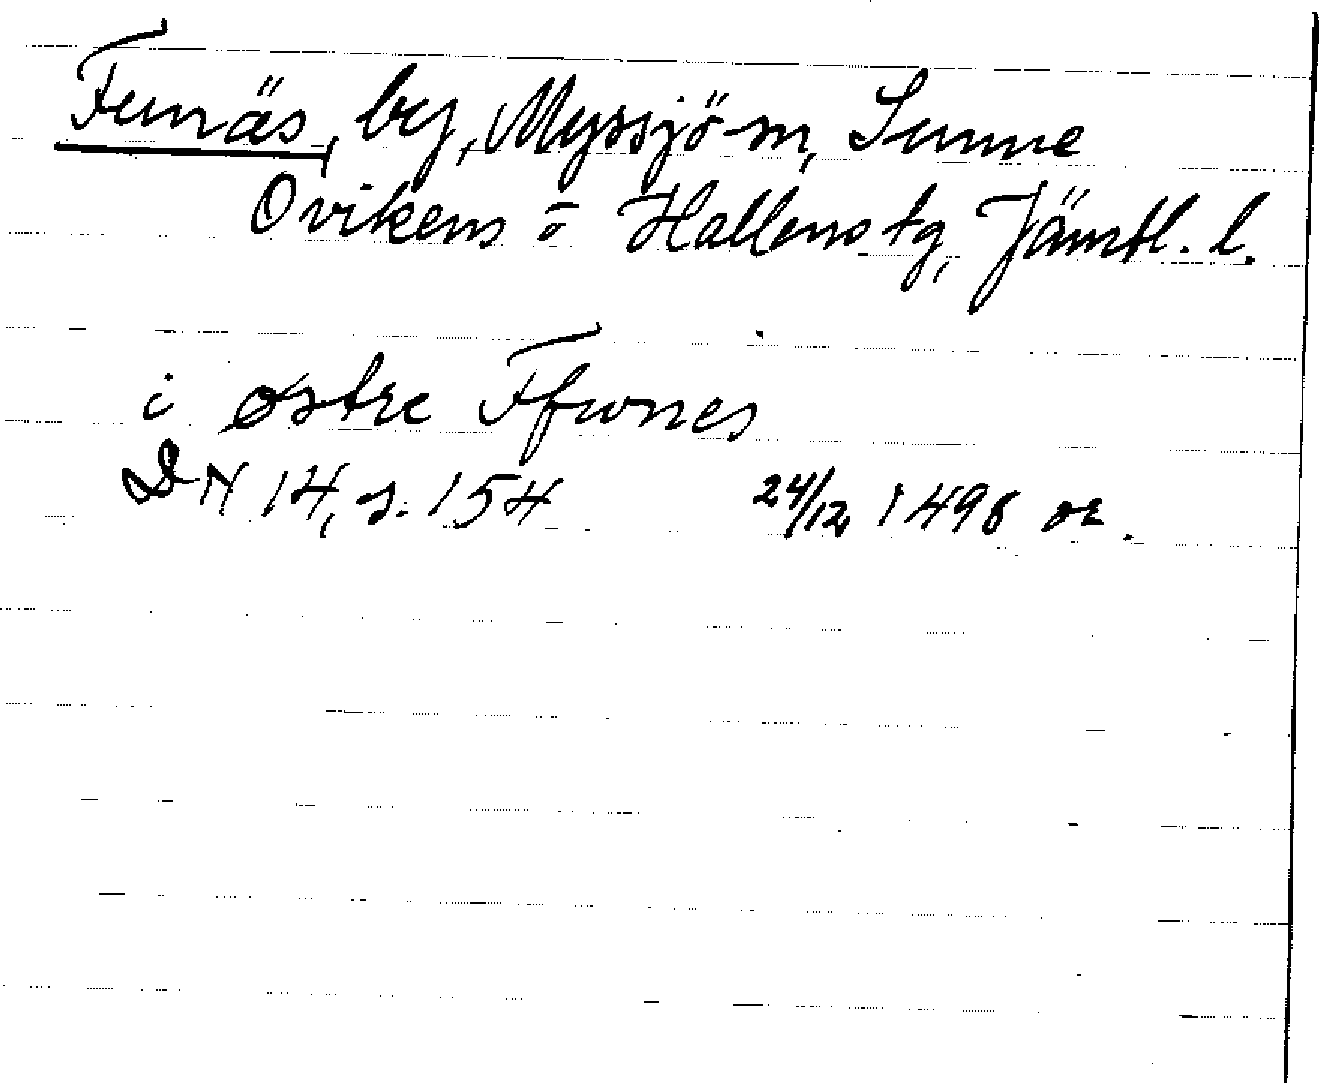 Funäs, by, Myssjö sn, Sunne
Ovikens o Hallens tg, Jämtl. l.
i østre Ffwnes
DN 14, s. 154 24/12 1498 or.